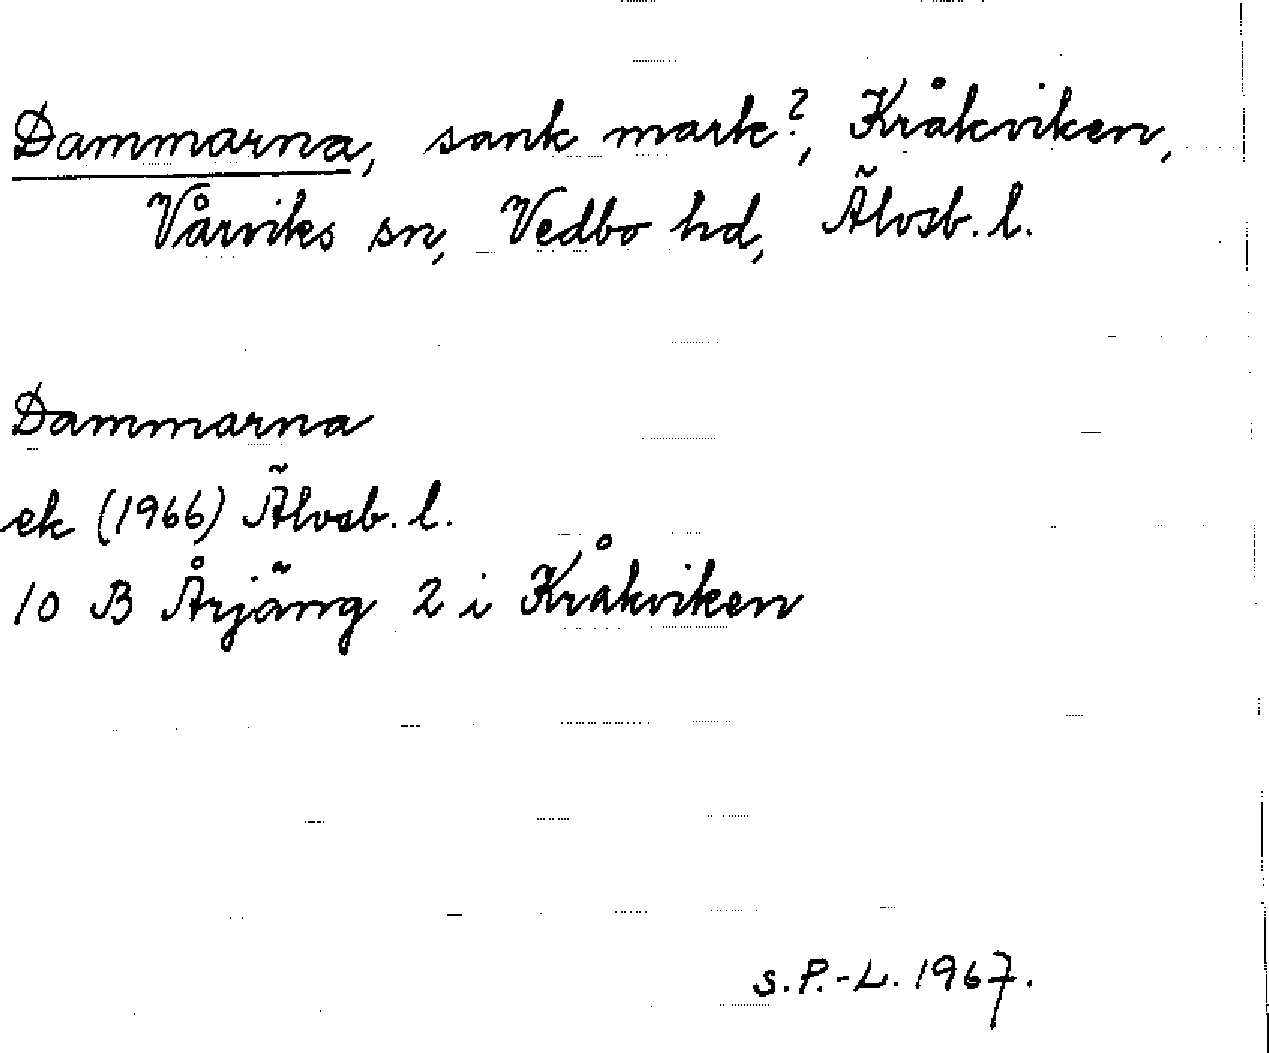 Dammarna, sank mark?, Kråkviken,
Vårviks sn, Vedbo hd, Älvsb. l.
Dammarna
ek (1966) Älvsb. l.
10 B Årjäng 2 i Kråkviken
s.P.-L. 1967.